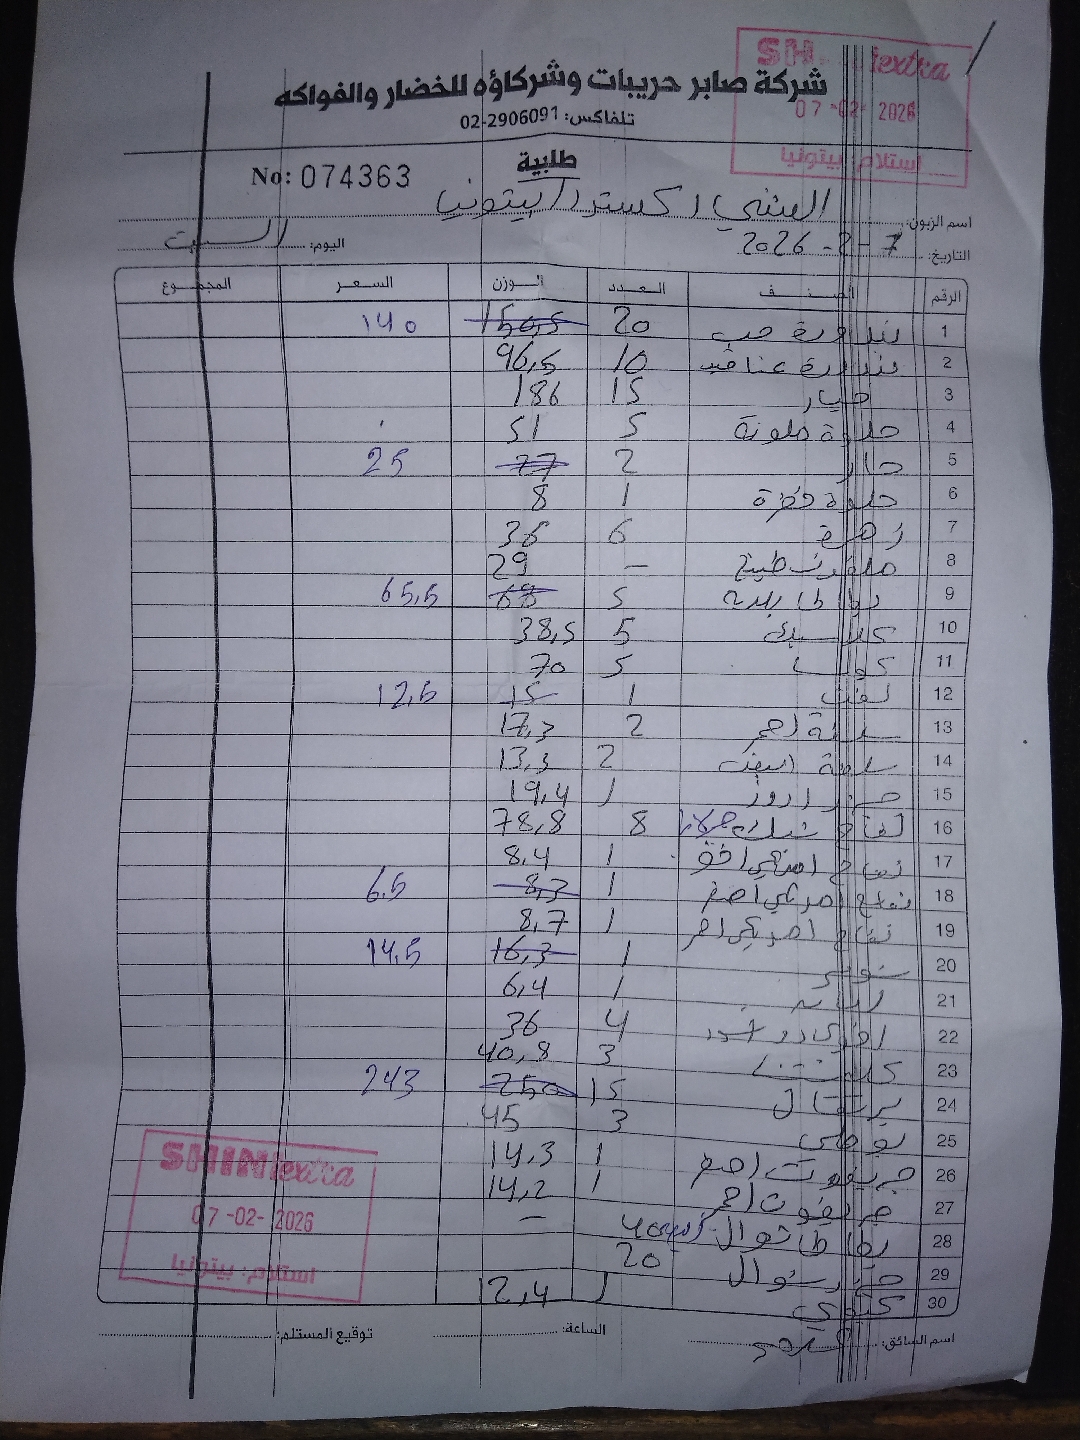 SHINI extra
07-02-2026
استلام: بيتونيا
شركة صابر حريبات وشركاؤه للخضار والفواكه
تلفاكس: 02-2906091
طلبية
No: 074363
اسم الزبون: الشني اكسترا / بيتونيا
التاريخ: 7-2-2026 اليوم: السبت
الرقم الصنف العدد الوزن السعر المجموع
1 بندورة حب 20 150,5 140
2 بندورة عناقيد 10 96,5
3 خيار 15 186
4 حلوة ملونة 5 51
5 حار 2 27 25
6 حلوة خضرة 1 8
7 زهرة 6 36
8 ملفوف طبيخ - 29
9 بطاطا بلدية 5 68 65,5
10 5 38,5
11 كوسا 5 70
12 لفت 1 15 12,5
13 سلطة احمر 2 17,3
14 سلطة ابيض 2 13,3
15 جزر اروز 1 19,4
16 تفاح 8 78,8
17 تفاح 1 8,4
18 تفاح امريكي اصفر 1 8,3 6.5
19 تفاح امريكي احمر 1 8,7
20 1 16,3 14.5
21 1 6,4
22 افوكادو 4 36
23 كلمنتينا 3 40,8
24 برتقال 15 250 243
25 بوملي 3 45
26 جريفوت اصفر 1 14,3
27 جريفوت احمر 1 14,2
28 بطاطا شوال 40 -
29 جزر شوال 20
30 كيوي 1 12,4
اسم السائق: الساعة: توقيع المستلم:
SHINI extra
07-02-2026
استلام: بيتونيا